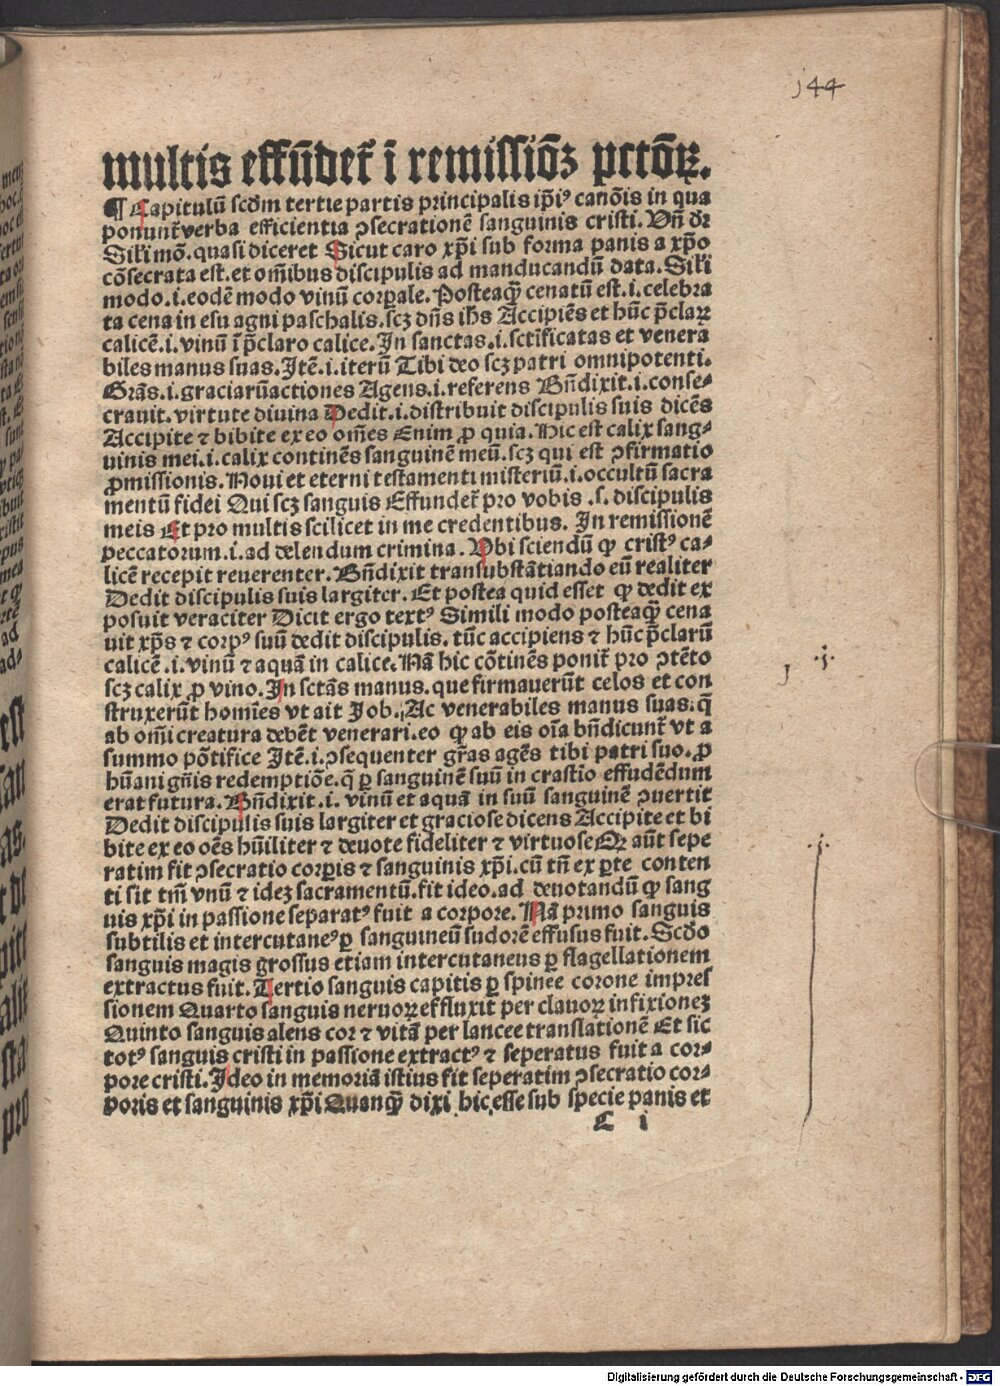 144
multis effūdet̄ ī remissiōꝫ pctōꝝ.
¶ Capitulū scd̄m tertie partis principalis ip̄iꝰ canōis in qua
ponunt̄ verba efficientia ꝯsecrationē sanguinis cristi. Vn̄ dr̄
Sil̄i mō. quasi diceret Sicut caro xp̄i sub forma panis a xp̄o
cōsecrata est. et om̄ibus discipulis ad manducandū data. Sil̄i
modo .i. eodē modo vinū corꝑale. Posteaqꝫ̄ cenatū est .i. celebra
ta cena in esu agni paschalis. scꝫ dn̄s ih̄s Accipiēs et hūc p̄claꝝ
calicē .i. vinū ī p̄claro calice. In sanctas .i. sct̄ificatas et venera
biles manus suas. Itē .i. iterū Tibi deo scꝫ patri omnipotenti.
Grās .i. graciarūactiones Agens .i. referens Bn̄dixit .i. conse⸗
crauit. virtute diuina Dedit .i. distribuit discipulis suis dicēs
Accipite ⁊ bibite ex eo om̄es Enim ꝓ quia. Hic est calix sang⸗
uinis mei .i. calix continēs sanguinē meū. scꝫ qui est ꝯfirmatio
ꝓmissionis. Noui et eterni testamenti misteriū .i. occultū sacra
mentū fidei Qui scꝫ sanguis Effundet̄ pro vobis .s. discipulis
meis Et pro multis scilicet in me credentibus. In remissionē
peccatorum .i. ad delendum crimina. Vbi sciendū ꝙ cristꝰ ca⸗
licē recepit reuerenter. Bn̄dixit transubstātiando eū realiter
Dedit discipulis suis largiter. Et postea quid esset ꝙ dedit ex
posuit veraciter Dicit ergo textꝰ Simili modo posteaqꝫ̄ cena
uit xp̄s ⁊ corpꝰ suū dedit discipulis. tūc accipiens ⁊ hūc p̄clarū
calicē .i. vinū ⁊ aquā in calice. Nā hic cōtinēs ponit̄ pro ꝯtēto
scꝫ calix ꝓ vino. In sctās manus. que firmauerūt celos et con
struxerūt homīes vt ait Job. Ac venerabiles manus suas. q̄
ab om̄i creatura debēt venerari. eo ꝙ ab eis oīa bn̄dicunt̄ vt a
summo pōtifice Itē .i. ꝯsequenter gr̄as agēs tibi patri suo. ꝓ
hūani gn̄is redemptiōe. q̄ ꝑ sanguinē suū in crastio effudēdum
erat futura. Bn̄dixit .i. vinū et aquā in suū sanguinē ꝯuertit
Dedit discipulis suis largiter et graciose dicens Accipite et bi
bite ex eo oēs hūiliter ⁊ deuote fideliter ⁊ virtuose Qꝫ aūt sepe
ratim fit ꝯsecratio corꝑis ⁊ sanguinis xp̄i. cū tn̄ ex ꝑte conten
ti sit tm̄ vnū ⁊ ideꝫ sacramentū. fit ideo. ad denotandū ꝙ sang
uis xp̄i in passione separatꝰ fuit a corpore. Nā primo sanguis
subtilis et intercutaneꝰ ꝑ sanguineū sudorē effusus fuit. Scd̄o
sanguis magis grossus etiam intercutaneus ꝑ flagellationem
extractus fuit. Tertio sanguis capitis ꝑ spinee corone impres
sionem Quarto sanguis neruoꝝ effluxit per clauoꝝ infixioneꝫ
Quinto sanguis alens cor ⁊ vitā per lancee translationē Et sic
totꝰ sanguis cristi in passione extractꝰ ⁊ seperatus fuit a cor⸗
pore cristi. Ideo in memoriā istius fit seperatim ꝯsecratio cor⸗
poris et sanguinis xp̄i Quanqꝫ̄ dixi hic esse sub specie panis et
C i
Digitalisierung gefördert durch die Deutsche Forschungsgemeinschaft - DFG